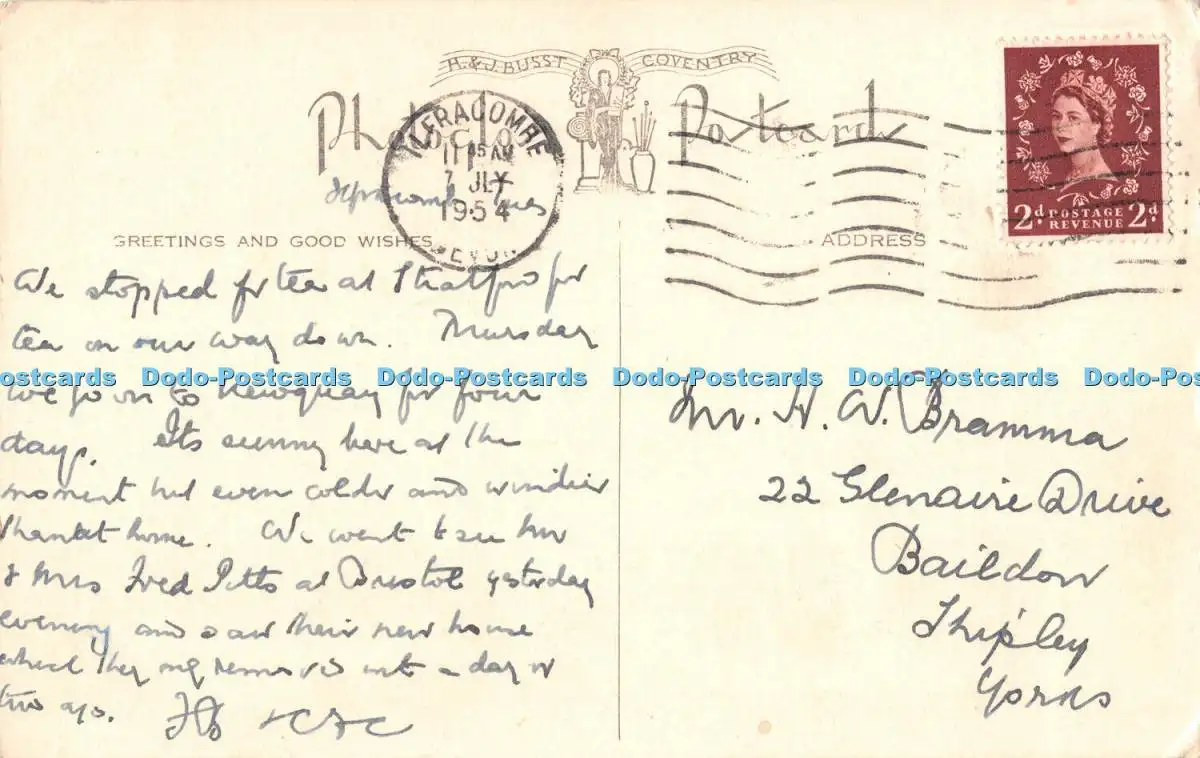 H. & J. BUSST COVENTRY
Photo Postcard
ILFRACOMBE
45 AM
7 JLY
1954
DEVON
Ilfracombe Tues
2d. POSTAGE REVENUE 2d.
GREETINGS AND GOOD WISHES
We stopped for tea at Stratford for
tea on our way down. Thursday
we go on to Newquay for four
days. Its sunny here at the
moment but even colder and windier
than at home. We went to see Mr
& Mrs Fred Pitts at Bristol yesterday
evening and saw their new house
which they only removed into a day or
two ago.
ADDRESS
Mr. H. W. Bramma
22 Glenaire Drive
Baildon
Shipley
Yorks
Dodo-Postcards Dodo-Postcards Dodo-Postcards Dodo-Postcards Dodo-Postcards